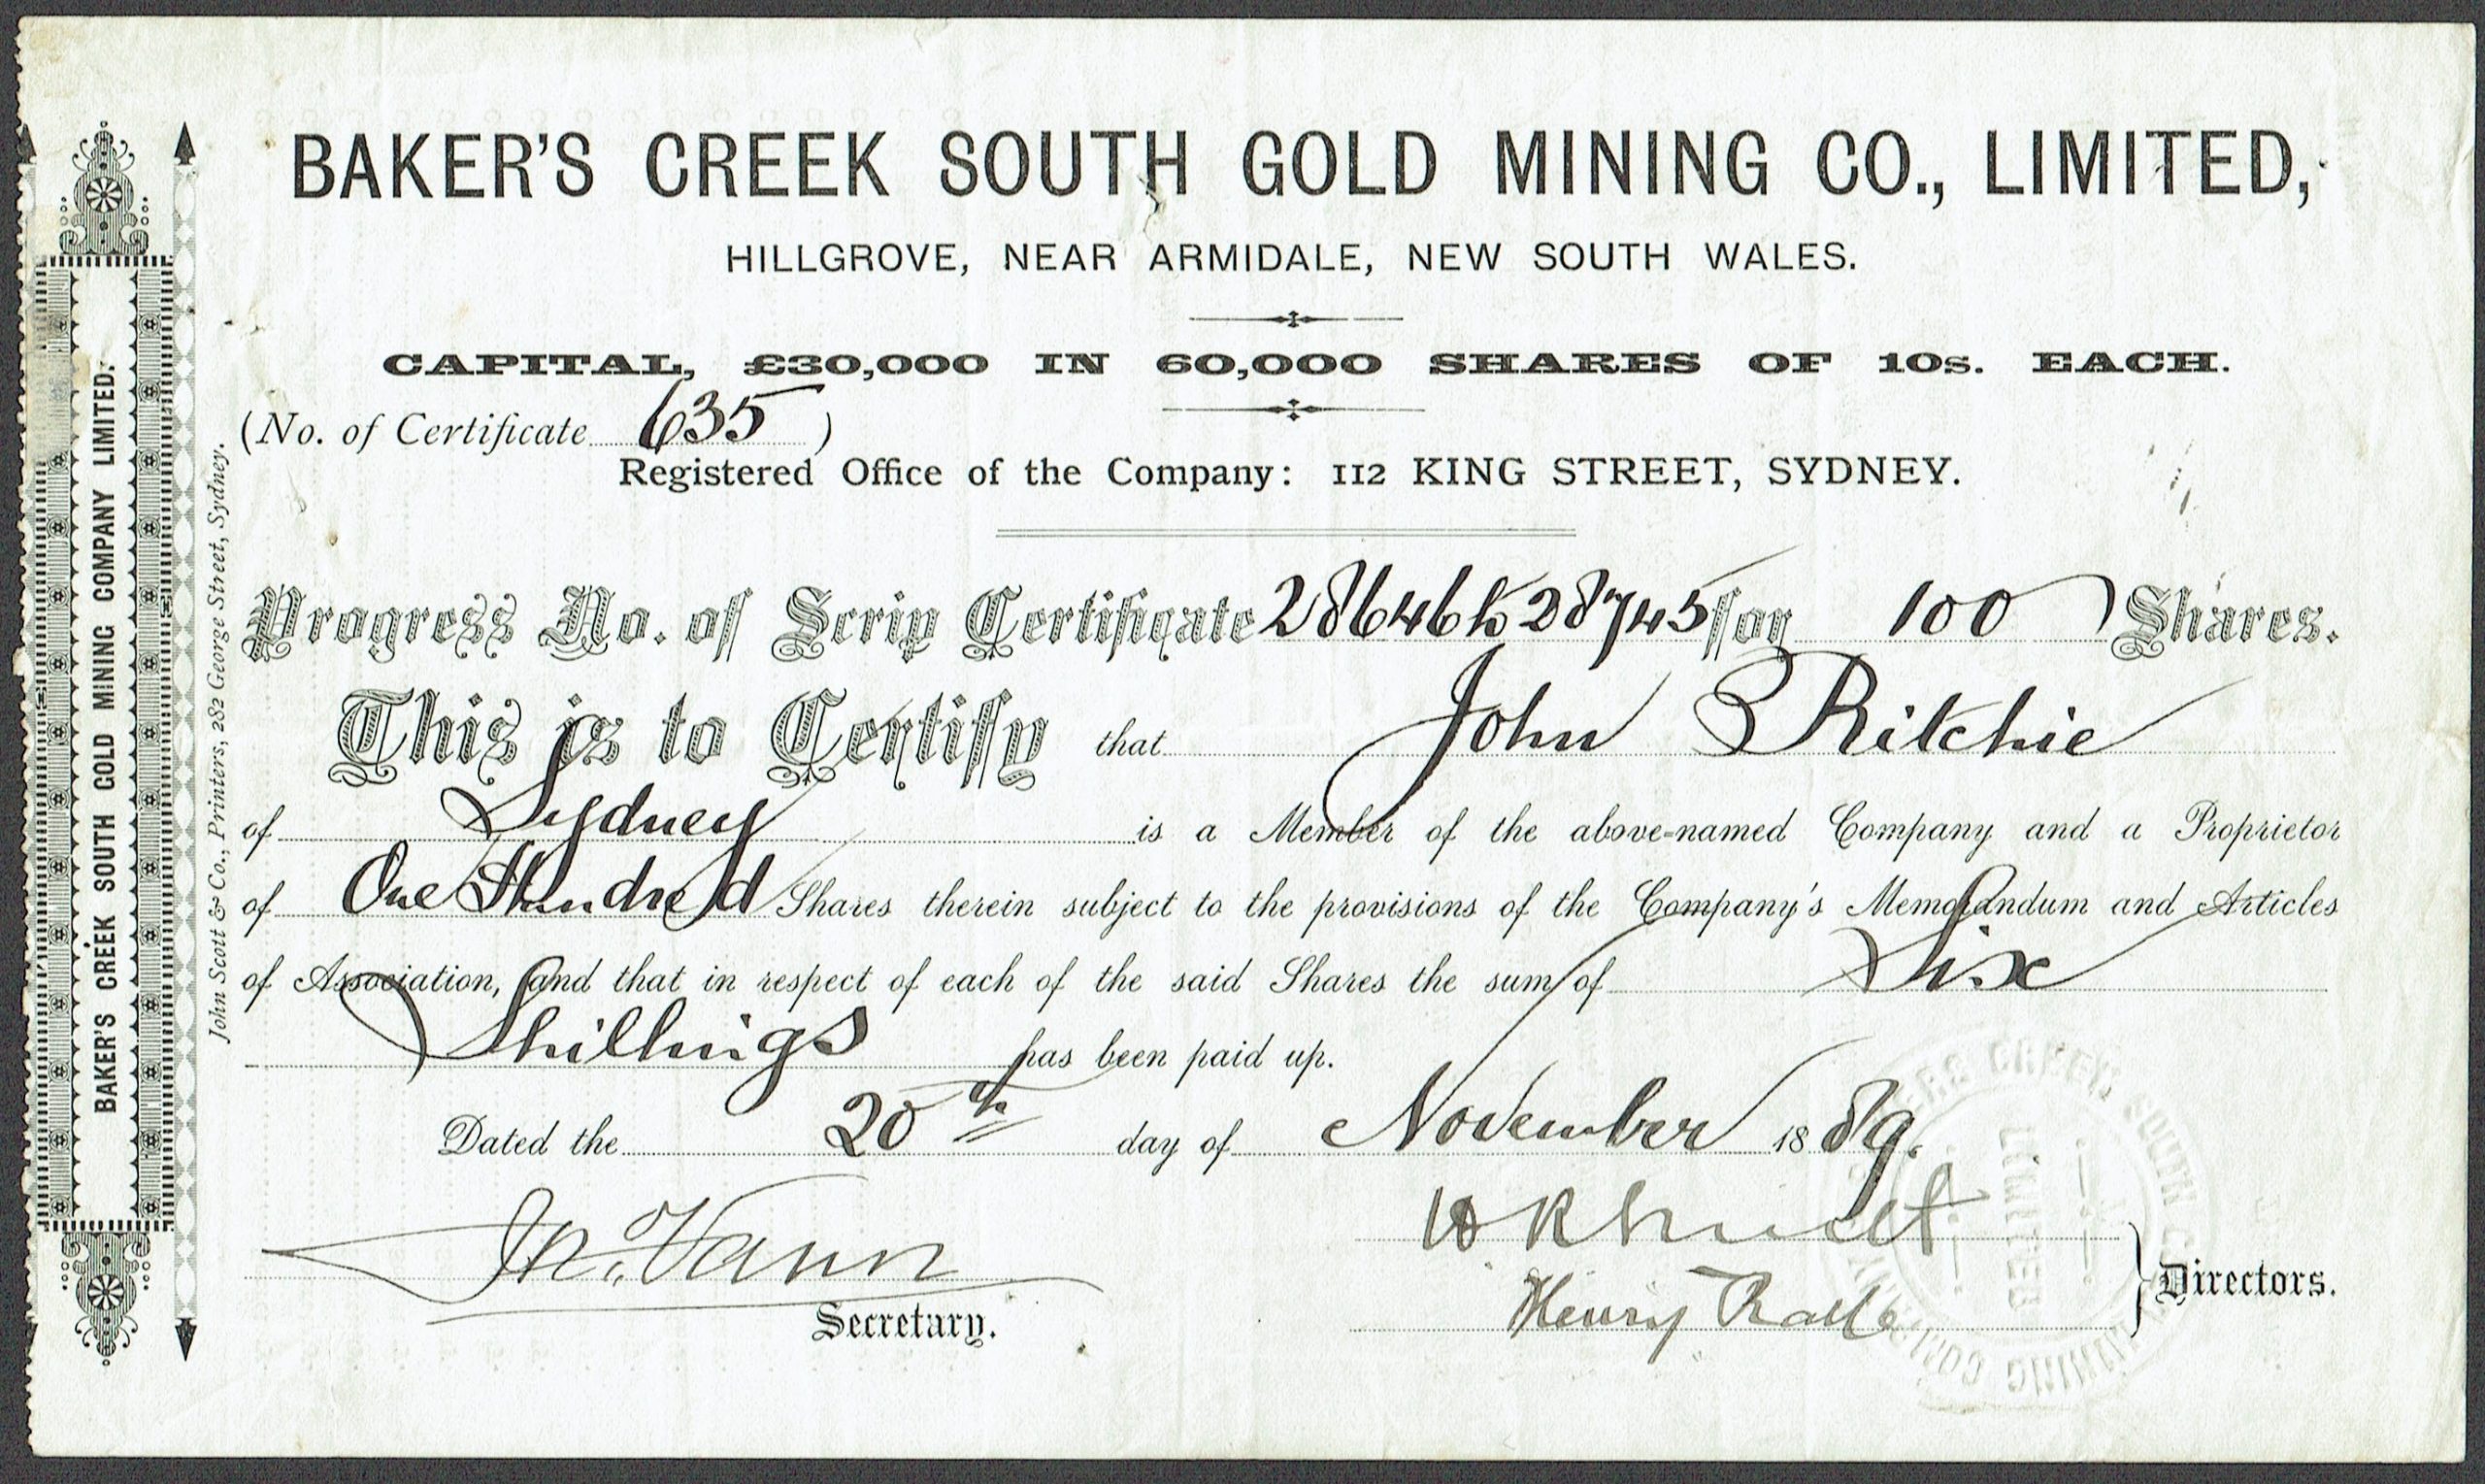 BAKER'S CREEK SOUTH GOLD MINING CO., LIMITED,
HILLGROVE, NEAR ARMIDALE, NEW SOUTH WALES.
CAPITAL, £30,000 IN 60,000 SHARES OF 10s. EACH.
(No. of Certificate 635)
Registered Office of the Company: 112 KING STREET, SYDNEY.
Progress No. of Scrip Certificate 28646 to 28745 for 100 Shares.
This is to Certify that John Ritchie
of Sydney is a Member of the above-named Company and a Proprietor
of One Hundred Shares therein subject to the provisions of the Company's Memorandum and Articles
of Association, and that in respect of each of the said Shares the sum of Six
Shillings has been paid up.
Dated the 20th day of November 1889.
Vann
Secretary.
Henry
Directors.
BAKER'S CREEK SOUTH GOLD MINING COMPANY LIMITED.
John Scott & Co., Printers, 282 George Street, Sydney.
CREEK SOUTH
MINING
LIMITED